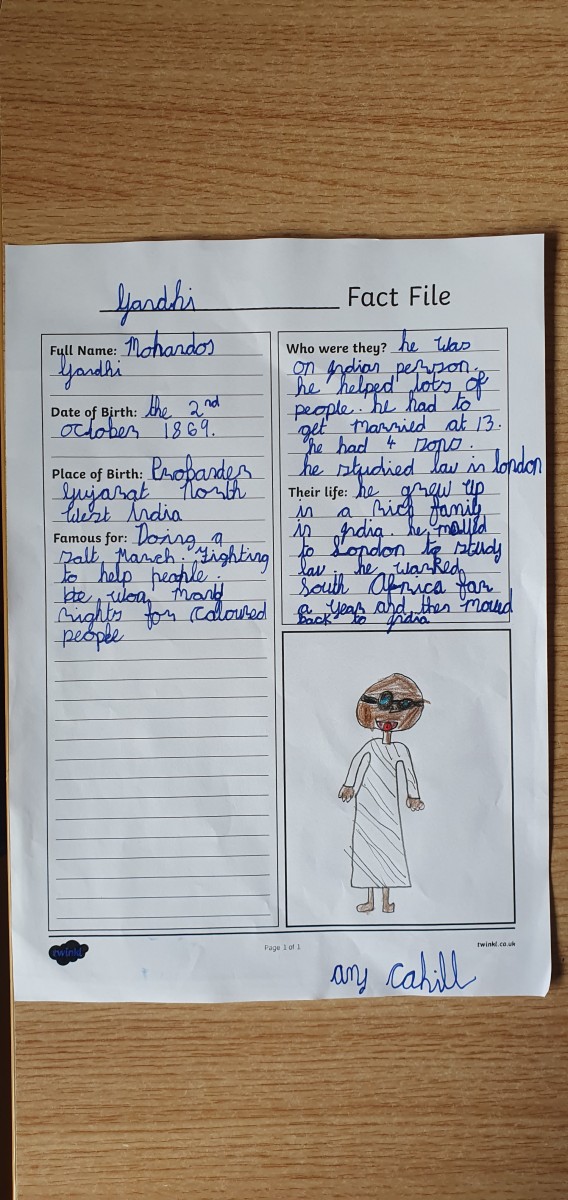 Gandhi Fact File
Full Name: Mohandos
Gandhi
Date of Birth: the 2nd
october 1869.
Place of Birth: Probander
Gujarat North
West India
Famous for: Doing a
salt March. Fighting
to help people.
He won many
rights for coloured
people
Who were they? he was
an Indian person.
he helped lots of
people. he had to
get married at 13.
he had 4 sons.
he studied law in london
Their life: he grew up
in a rich family
in India. he moved
to London to study
law. he worked
South Africa for
a year and then moved
back to India
twinkl
Page 1 of 1
twinkl.co.uk
Cahill